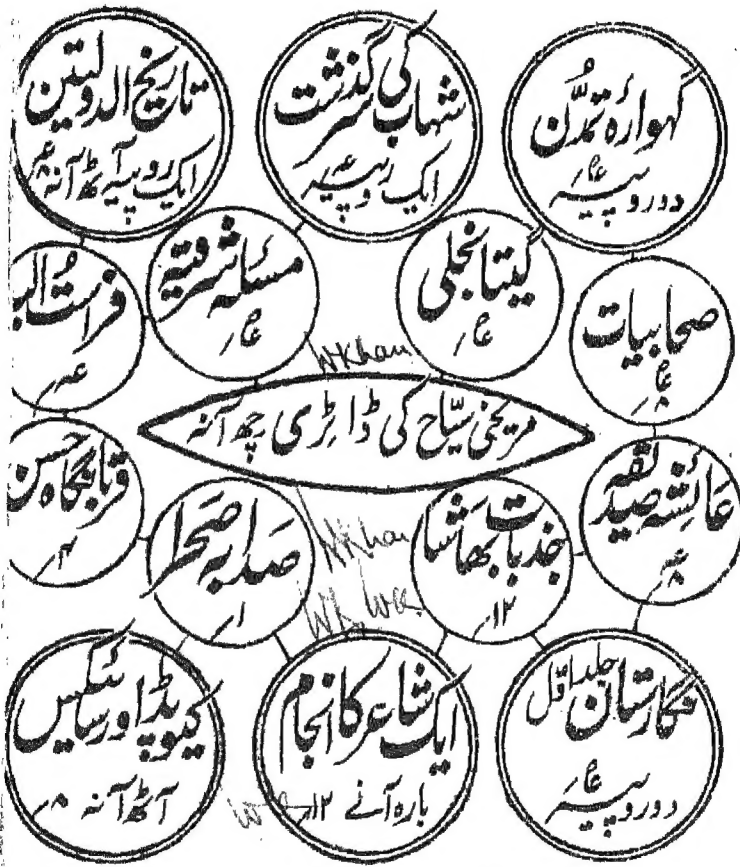 گہوارۂ تمدُّن
دو روپیہ
شہاب کی سرگذشت
ایک روپیہ
تاریخ الدولتین
ایک روپیہ آٹھ آنہ
صحابیات
گیتانجلی
مسئلہ شرقیہ
فراستُ الید
W Khan
مریخی سیّاح کی ڈائری چھ آنہ
عائشہ صدیقہ
جذبات بھاشا
۱۲؍
W Khan
صدا بہ صحرا
۱؍
قربانگاہ حسن
۴؍
نگارستان جلد اوّل
دو روپیہ
ایک شاعر کا انجام
بارہ آنے ۱۲؍
کیوپڈ اور سائیکس
آٹھ آنہ ۸؍